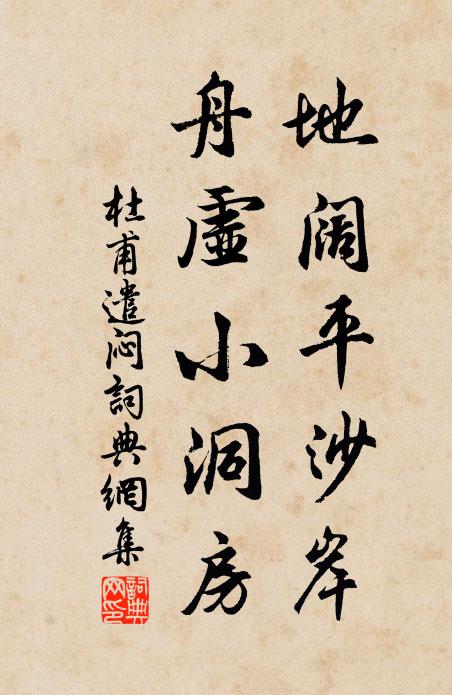 地阔平沙岸
舟虚小洞房
杜甫遣闷詞典網集
詞典网印